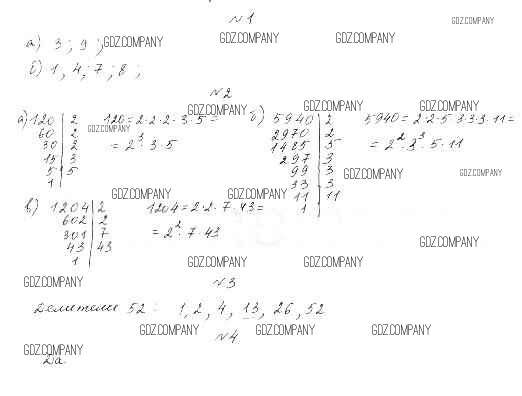 №1
GDZ.COMPANY
а) 3; 9; GDZ.COMPANY GDZ.COMPANY GDZ.COMPANY
б) 1, 4; 7; 8;
№2
GDZ.COMPANY GDZ.COMPANY GDZ.COMPANY
а) 120 | 2 120 = 2·2·2·3·5 = б) 5940 | 2 5940 = 2·2·5·3·3·3·11 =
60 | 2 GDZ.COMPANY 2970 | 2
30 | 2 = 2³·3·5 1485 | 5 = 2²·3³·5·11
15 | 3 297 | 3
5 | 5 99 | 3 GDZ.COMPANY GDZ.COMPANY
1 33 | 3
GDZ.COMPANY GDZ.COMPANY 11 | 11
в) 1204 | 2 1204 = 2·2·7·43 = 1
602 | 2
301 | 7 = 2²·7·43
43 | 43 GDZ.COMPANY
1 GDZ.COMPANY GDZ.COMPANY
GDZ.COMPANY №3
Делители 52: 1, 2, 4, 13, 26, 52
GDZ.COMPANY GDZ.COMPANY GDZ.COMPANY
№4
GDZ.COMPANY
Да.